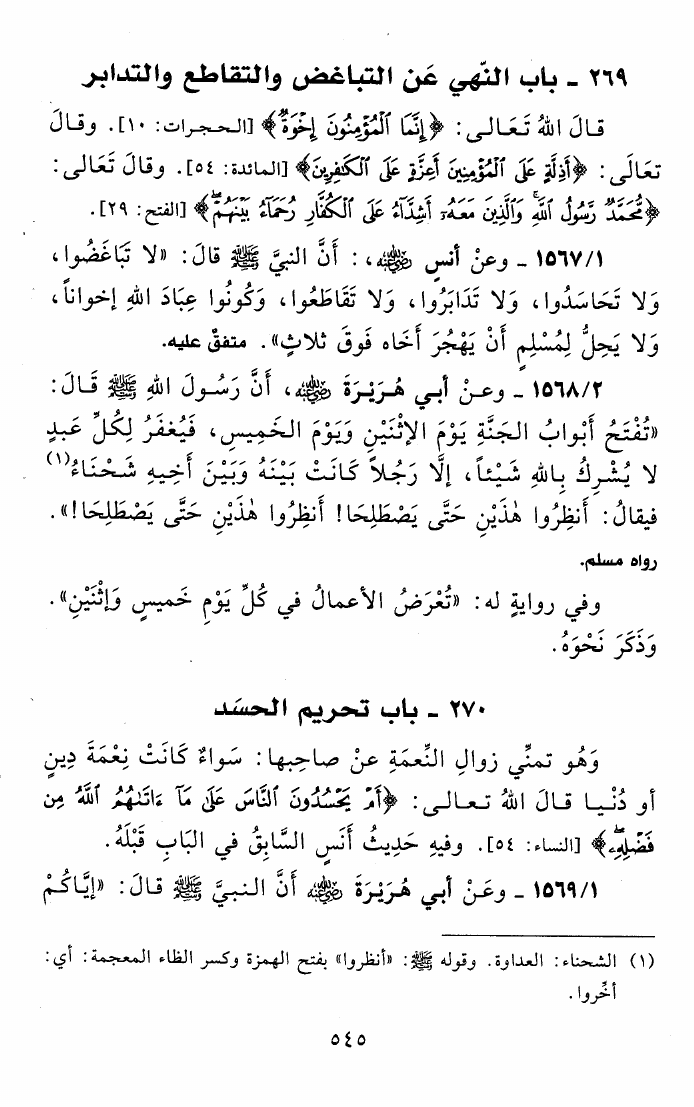 ٢٦٩ - باب النّهي عَن التباغض والتقاطع والتدابر
قالَ اللهُ تَعَـالى: ﴿إِنَّمَا ٱلْمُؤْمِنُونَ إِخْوَةٌ﴾ [الحجرات: ١٠]. وقالَ
تعَالَى: ﴿أَذِلَّةٍ عَلَى ٱلْمُؤْمِنِينَ أَعِزَّةٍ عَلَى ٱلْكَٰفِرِينَ﴾ [المائدة: ٥٤]. وقالَ تَعَالى:
﴿مُّحَمَّدٌ رَّسُولُ ٱللَّهِۚ وَٱلَّذِينَ مَعَهُۥٓ أَشِدَّآءُ عَلَى ٱلْكُفَّارِ رُحَمَآءُ بَيْنَهُمْۖ﴾ [الفتح: ٢٩].
١٥٦٧/١ - وعنْ أنسٍ ﵁، : أَنَّ النبيَّ ﷺ قالَ: «لا تَبَاغَضُوا،
وَلا تَحَاسَدُوا، وَلا تَدَابَرُوا، وَلا تَقَاطَعُوا، وَكُونُوا عِبَادَ اللهِ إخواناً،
وَلا يَحِلُّ لِمُسْلِمٍ أَنْ يَهْجُرَ أَخَاه فَوقَ ثلاثٍ». متفقٌ عليه.
١٥٦٨/٢ - وعـنْ أبـي هُـرَيْـرَةَ ﵁، أَنَّ رَسُـولَ اللهِ ﷺ قَـالَ:
«تُفْتَحُ أَبْوابُ الجَنَّةِ يَوْمَ الإثْنَيْنِ وَيَوْمَ الخَمِيسِ، فَيُغفَرُ لِكُلِّ عَبدٍ
لا يُشْرِكُ بِاللهِ شَيْئاً، إلَّا رَجُلاً كَانَتْ بَيْنَهُ وَبَيْنَ أَخِيهِ شَحْنَاءُ(١)
فيقالُ: أَنظِرُوا هٰذَيْنِ حَتَّى يَصْطَلِحَا! أَنظِرُوا هٰذَيْنِ حَتَّى يَصْطَلِحَا!».
رواه مسلم.
وفي روايةٍ له: «تُعْرَضُ الأعمالُ في كُلِّ يَوْمِ خَميسٍ وَإثْنَيْنِ».
وَذَكَرَ نَحْوَهُ.
٢٧٠ - باب تحريم الحسَد
وَهُو تمنِّي زوالِ النِّعمَةِ عنْ صاحِبها: سَواءٌ كَانَتْ نِعْمَةَ دِينٍ
أو دُنْيـا قـالَ اللهُ تـعـالى: ﴿أَمْ يَحْسُدُونَ ٱلنَّاسَ عَلَىٰ مَآ ءَاتَىٰهُمُ ٱللَّهُ مِن
فَضْلِهِۦۖ﴾ [النساء: ٥٤]. وفيهِ حَدِيثُ أَنَسٍ السَّابِقُ في البَابِ قَبْلَهُ.
١٥٦٩/١ - وعَنْ أبي هُرَيْرَةَ ﵁ أَنَّ النبيَّ ﷺ قالَ: «إيَّاكُمْ
(١) الشحناء: العداوة. وقوله ﷺ: «أنظروا» بفتح الهمزة وكسر الظاء المعجمة: أي:
أخِّروا.
٥٤٥